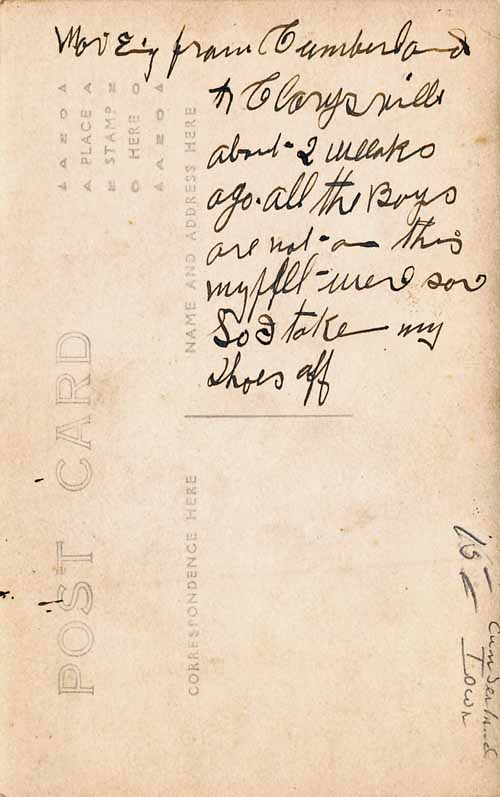 from Cumberland
to Clarysville
about 2 weeks
ago. all the Boys
are not on this
my feet were sor
So I take my
shoes off
POST CARD
PLACE
STAMP
HERE
AZO
AZO
NAME AND ADDRESS HERE
CORRESPONDENCE HERE
15-
Cumberland
Town